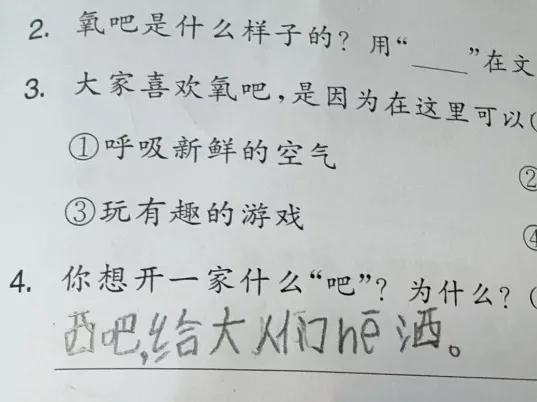 2. 氧吧是什么样子的？用“____”在文
3. 大家喜欢氧吧，是因为在这里可以(
①呼吸新鲜的空气
②
③玩有趣的游戏
4. 你想开一家什么“吧”？为什么？(
酉吧,给大人们hē洒。